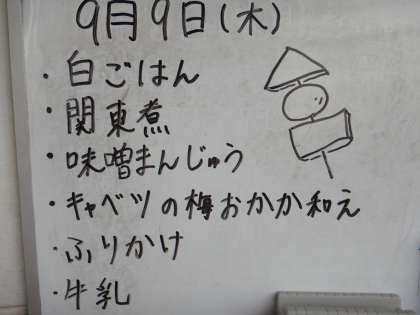 9月9日(木)
・白ごはん
・関東煮
・味噌まんじゅう
・キャベツの梅おかか和え
・ふりかけ
・牛乳